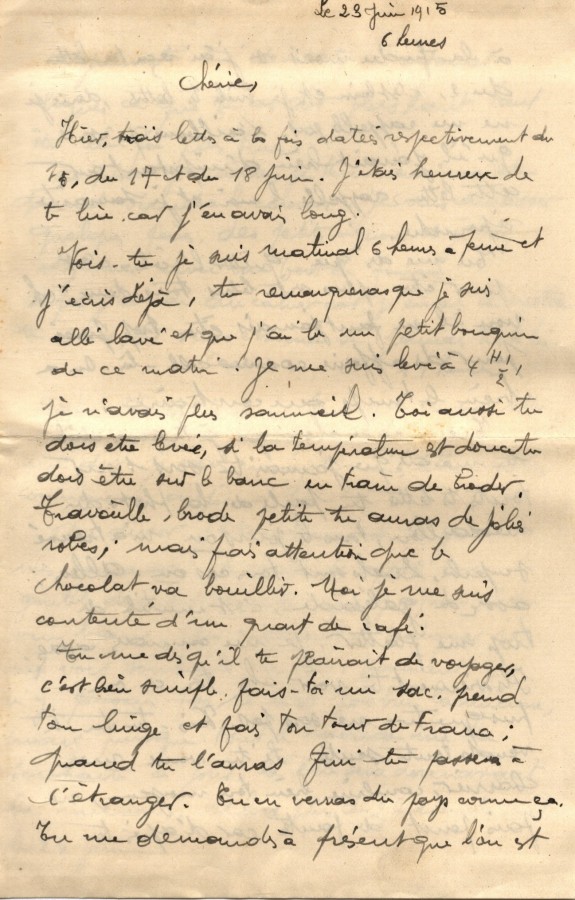 Le 23 Juin 1915
6 heures
Chérie,
Hier, trois lettres à la fois datées respectivement du
15, du 17 et du 18 juin. J'étais heureux de
te lire car j'en avais long.
Vois-tu je suis matinal 6 heures à peine et
j'écris déjà, tu remarqueras que je suis
allé lavé et que j'ai lu un petit bouquin
de ce matin. Je me suis levé à 4 H 1/2,
je n'avais plus sommeil. Toi aussi tu
dois être levée, si la température est douce tu
dois être sur le banc en train de broder.
Travaille, brode petite tu auras de jolies
robes; mais fais attention que le
chocolat va bouillir. Moi je me suis
contenté d'un quart de café.
Tu me dis qu'il te plairait de voyager,
c'est bien simple. fais-toi un sac. prend
ton linge et fais ton tour de France;
quand tu l'auras fini tu passera à
l'étranger. Tu en verras du pays comme ça.
Tu me demandes à présent que l'on est